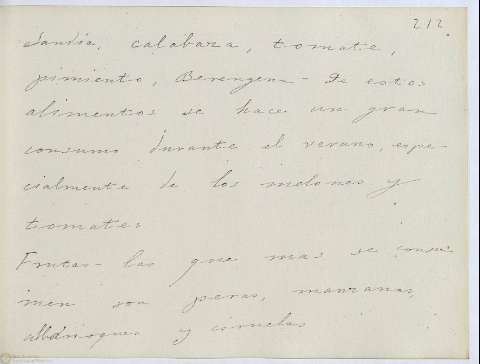 212.
Sandia, calabaza, tomate,
pimiento, Berengena - De estos
alimentos se hace un gran
consumo durante el verano, espe-
cialmente de los melones y
tomates
Frutas - las que mas se consu-
men son peras, manzanas,
albaricoques y ciruelas